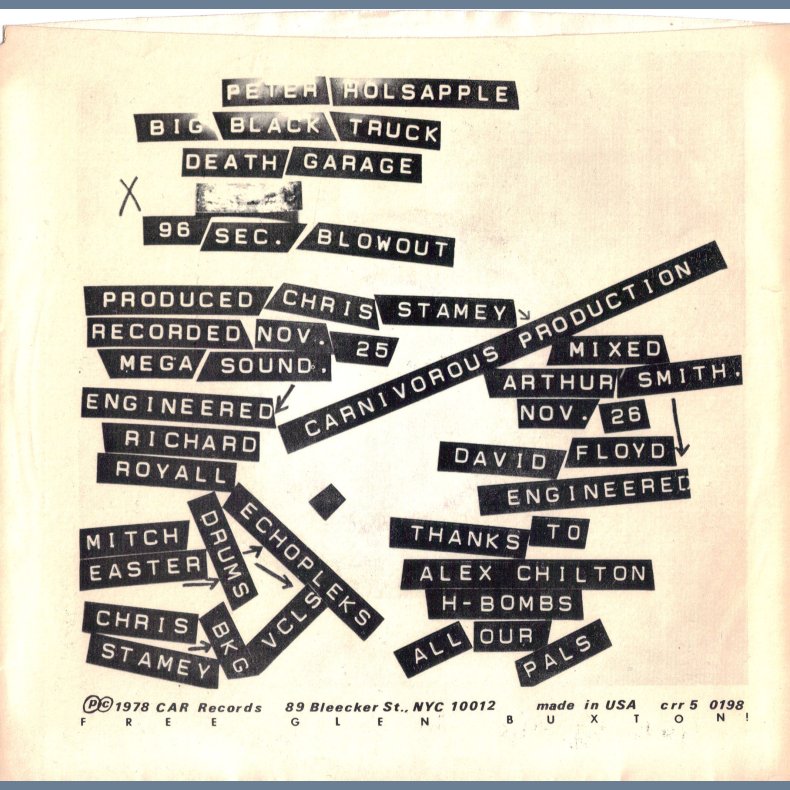 PETER HOLSAPPLE
BIG BLACK TRUCK
DEATH GARAGE
X
96 SEC. BLOWOUT
PRODUCED CHRIS STAMEY
RECORDED NOV. 25
MEGA SOUND.
CARNIVOROUS PRODUCTION
ENGINEERED
RICHARD
ROYALL
MIXED
ARTHUR SMITH.
NOV. 26
DAVID FLOYD
ENGINEERED
MITCH
EASTER
DRUMS
ECHOPLEKS
CHRIS
STAMEY
BKG VCLS
THANKS TO
ALEX CHILTON
H-BOMBS
ALL OUR
PALS
ⓟ© 1978 CAR Records 89 Bleecker St., NYC 10012 made in USA crr 5 0198
FREE GLEN BUXTON!